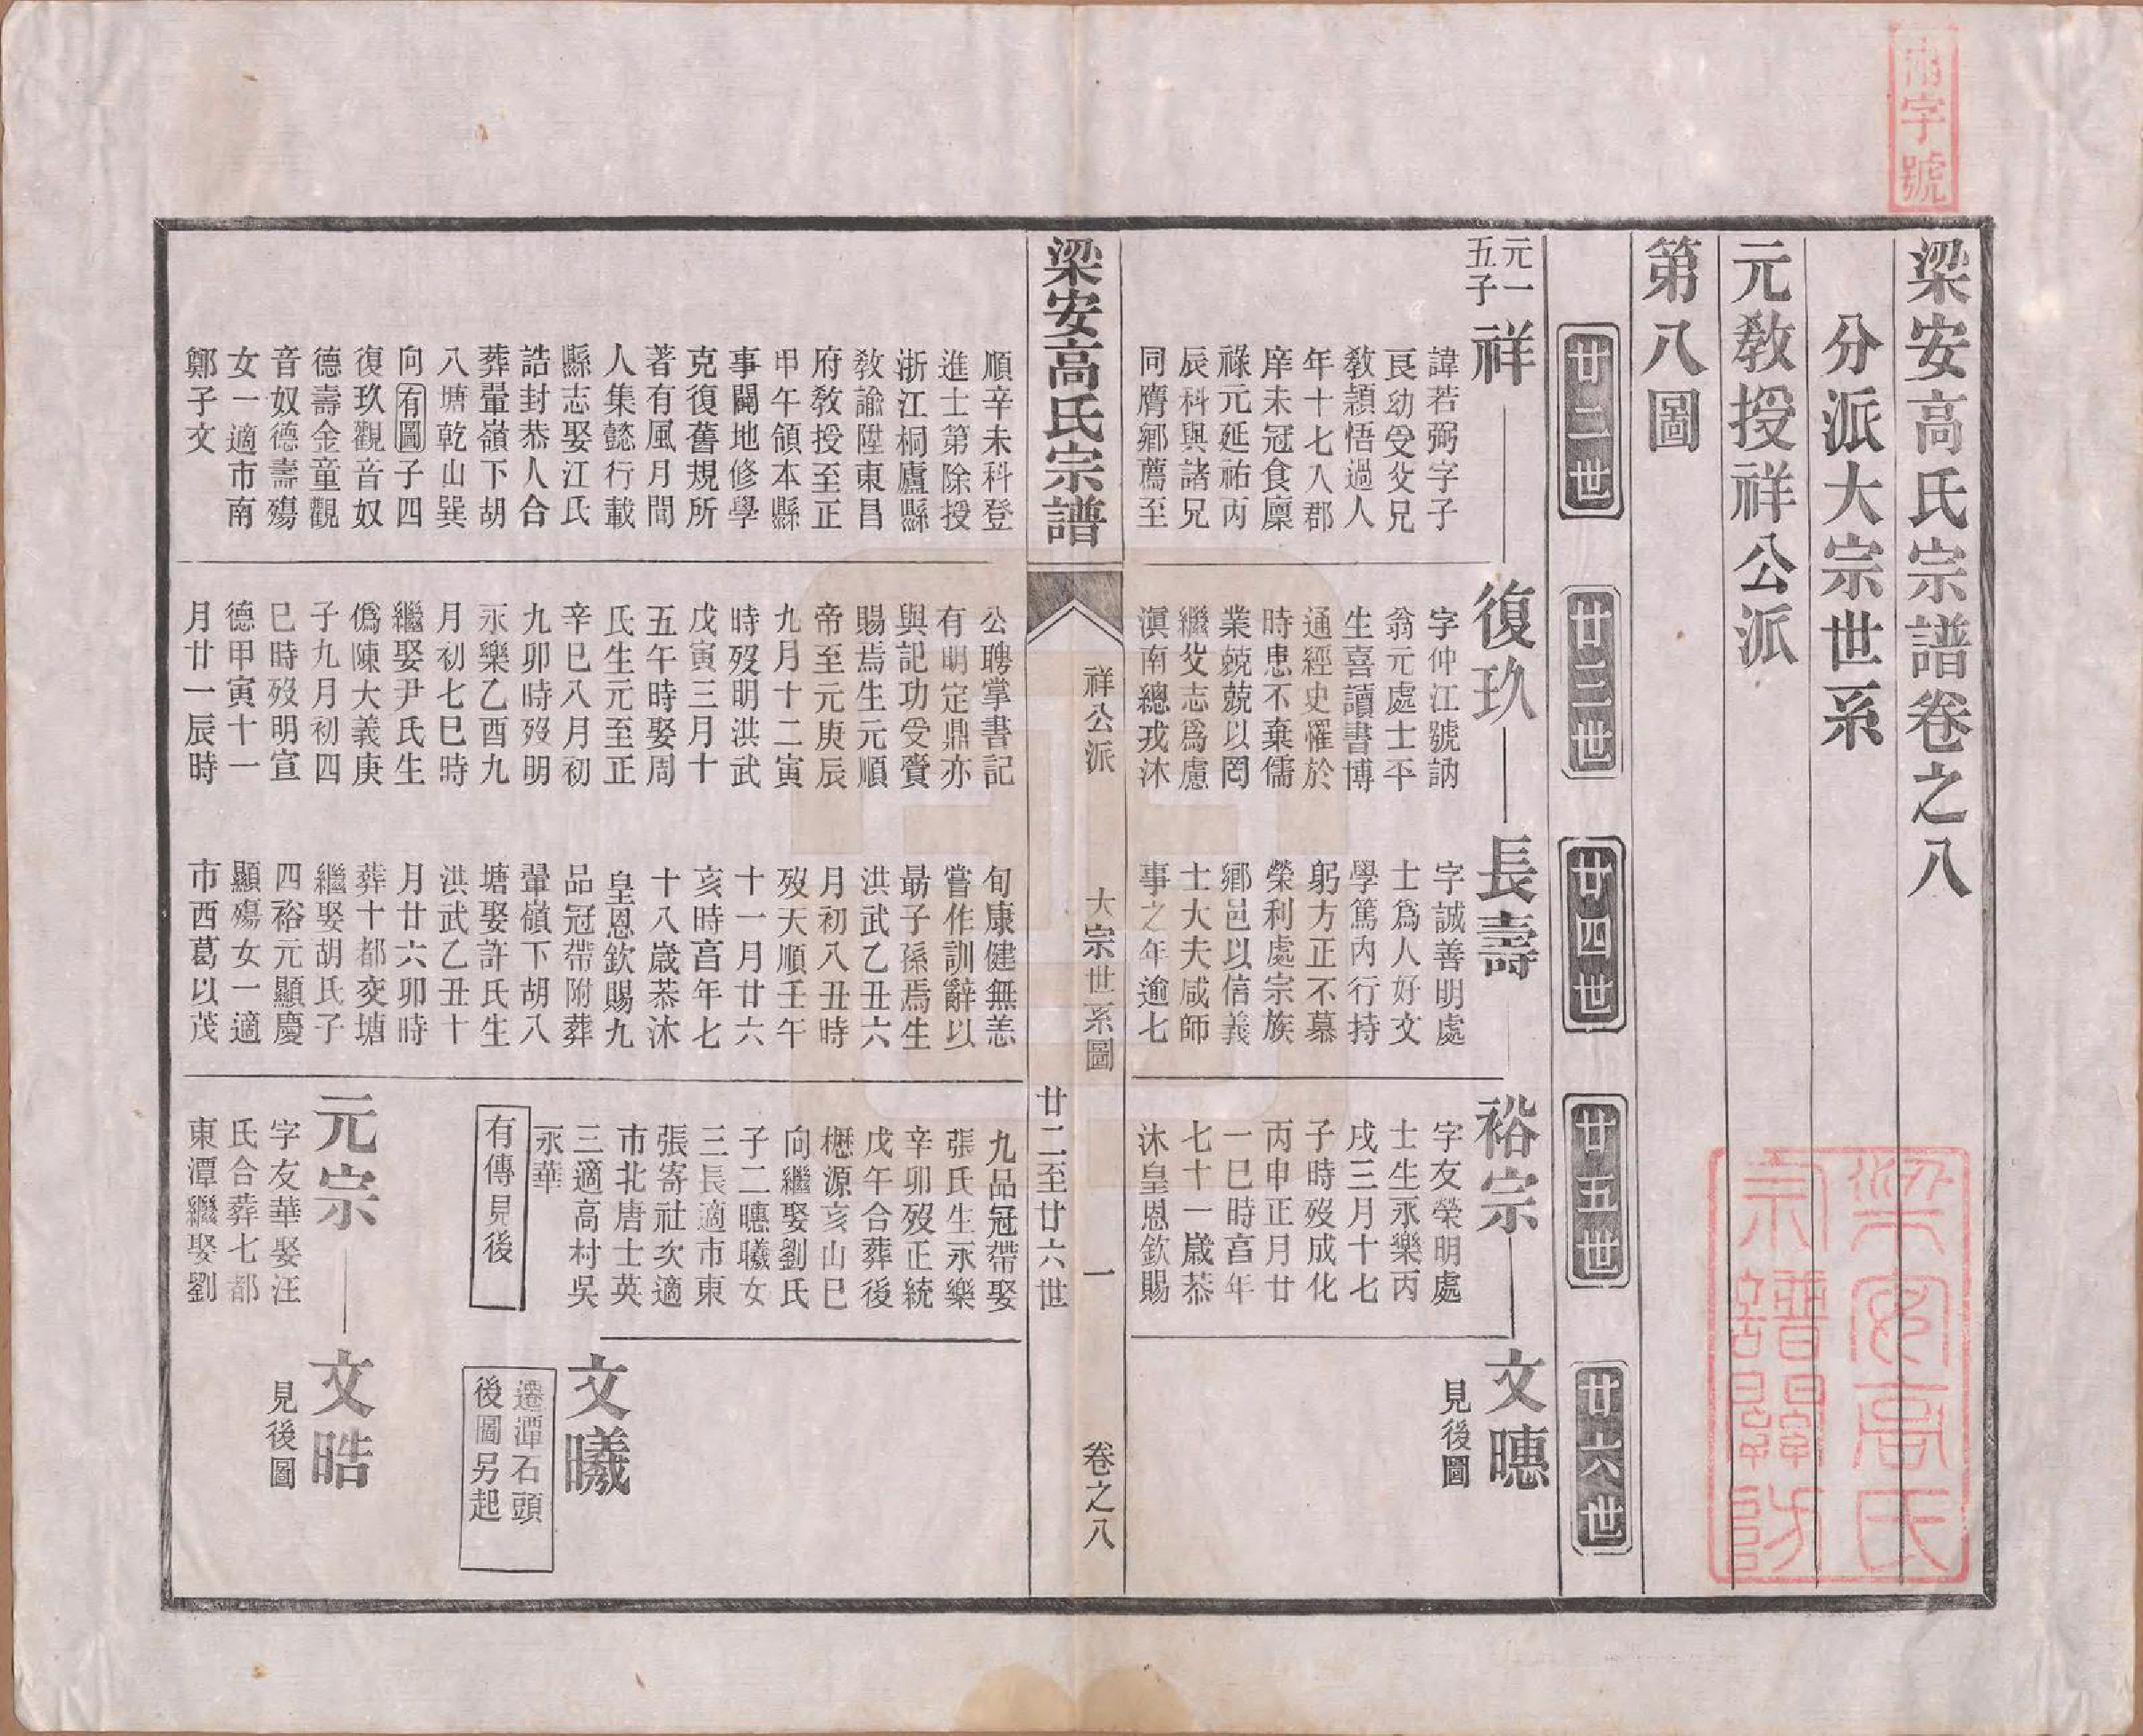 梁安高氏宗譜卷之八
分派大宗世系
元教授祥公派
第八圖
廿二世
廿三世
廿四世
廿五世
廿六世
元一
五子
祥
諱若弼字子
良幼受父兄
教穎悟過人
年十七入郡
庠未冠食廩
祿元延祐丙
辰科與諸兄
同膺鄉薦至
順辛未科登
進士第除授
浙江桐廬縣
教諭陞東昌
府教授至正
甲午領本縣
事闢地修學
克復舊規所
著有風月間
人集懿行載
縣志娶江氏
誥封恭人合
葬翬嶺下胡
八塘乾山巽
向有圖子四
復玖觀音奴
德壽金童觀
音奴德壽殤
女一適市南
鄭子文
復玖
字仲江號訥
翁元處士平
生喜讀書博
通經史罹於
時患不棄儒
業兢兢以罔
繼父志爲慮
滇南總戎沐
公聘掌書記
有明定鼎亦
與記功受賚
賜焉生元順
帝至元庚辰
九月十二寅
時歿明洪武
戊寅三月十
五午時娶周
氏生元至正
辛巳八月初
九卯時歿明
永樂乙酉九
月初七巳時
繼娶尹氏生
僞陳大義庚
子九月初四
巳時歿明宣
德甲寅十一
月廿一辰時
長壽
字誠善明處
士爲人好文
學篤內行持
躬方正不慕
榮利處宗族
鄉邑以信義
士大夫咸師
事之年逾七
旬康健無恙
嘗作訓辭以
勗子孫焉生
洪武乙丑六
月初八丑時
歿天順壬午
十一月廿六
亥時享年七
十八歲恭沐
皇恩欽賜九
品冠帶附葬
翬嶺下胡八
塘娶許氏生
洪武乙丑十
月廿六卯時
葬十都交塘
繼娶胡氏子
四裕元顯慶
顯殤女一適
市西葛以茂
裕宗
字友榮明處
士生永樂丙
戌三月十七
子時歿成化
丙申正月廿
一巳時享年
七十一歲恭
沐皇恩欽賜
九品冠帶娶
張氏生永樂
辛卯歿正統
戊午合葬後
楙源亥山巳
向繼娶劉氏
子二㬎曦女
三長適市東
張寄社次適
市北唐士英
三適高村吳
永華
有傳見後
元宗
字友華娶汪
氏合葬七都
東潭繼娶劉
文㬎
見後圖
文曦
遷潭石頭
後圖另起
文晧
見後圖
梁安高氏宗譜
祥公派
大宗世系圖
廿二至廿六世
一
卷之八
字號
梁安高氏
宗譜關防